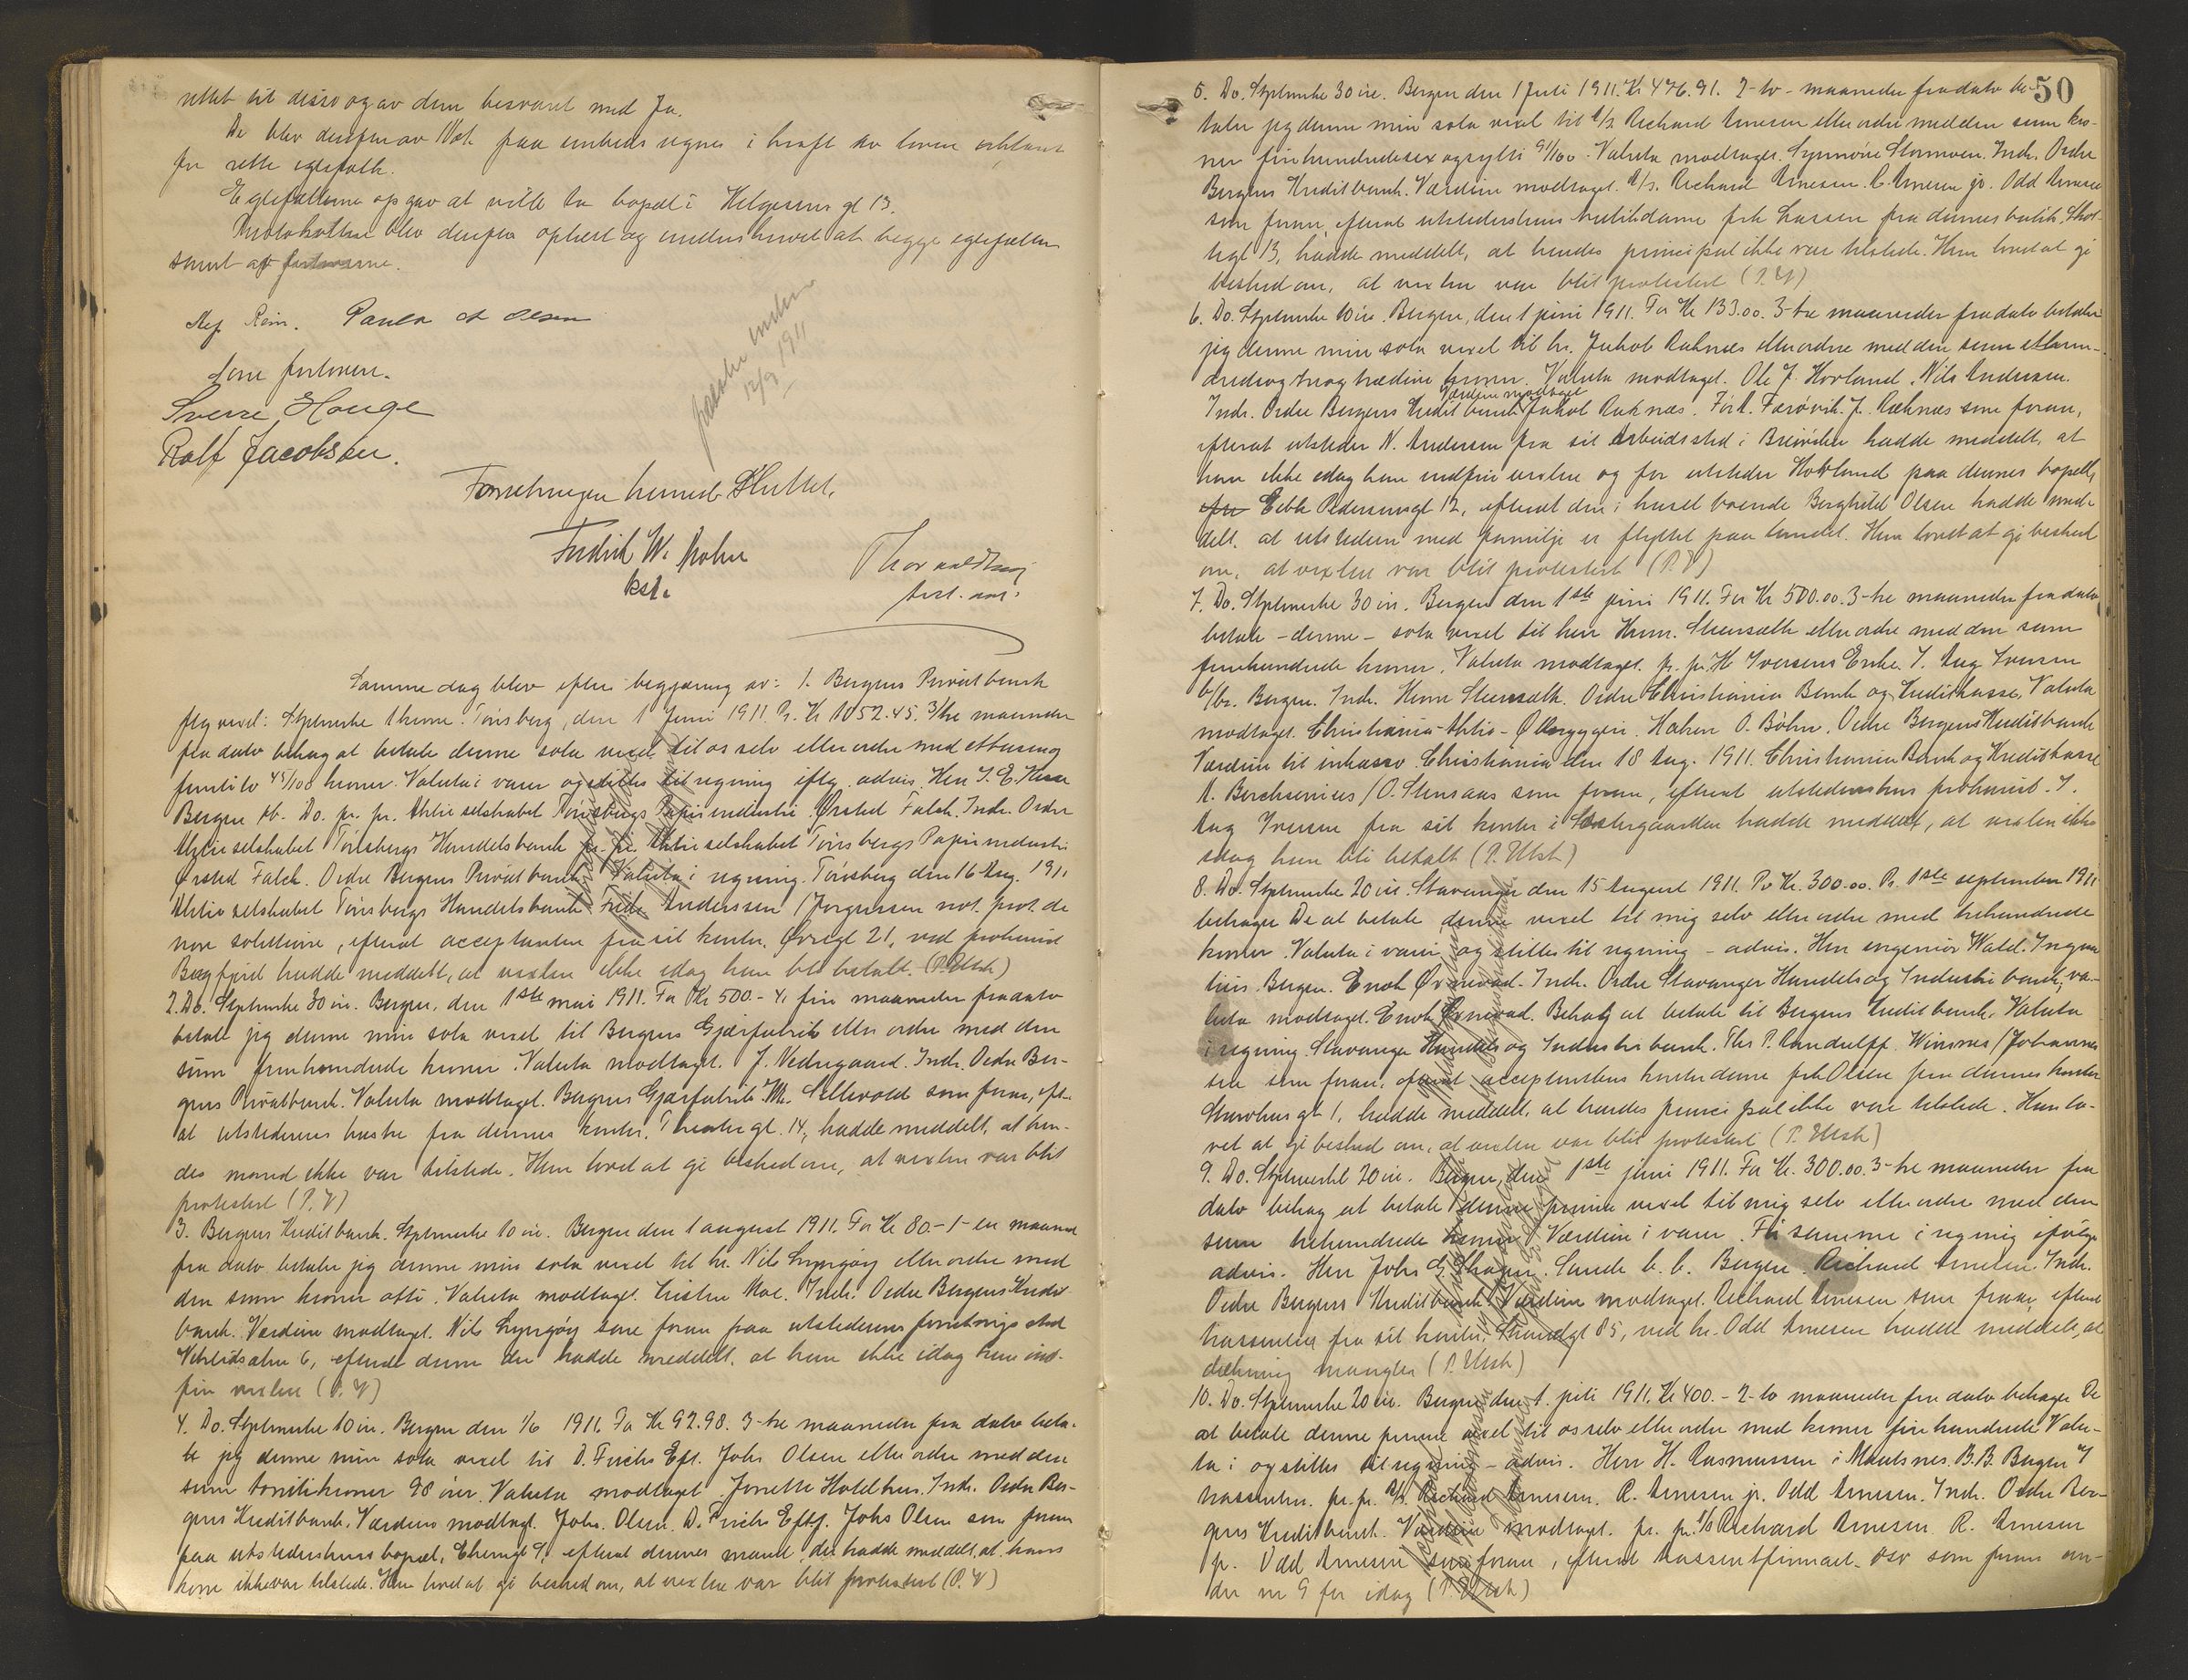 rettet til disse og av dem besvaret med Ja.
De blev derefter av Not. paa embeds vegne i kraft av loven erklæret
for rette egtefolk.
Egtefællerne opgav at ville ta bopæl i Helgesens gt 13.
Protokollen blev derefter oplæst og underskrevet at begge egtefæller
samt af forloverne.
Alf Rein. Paula A Olsen
som forlovere.
Sverre Houge
Rolf Jacobsen.
12/9 1911
Forretningen hermed sluttet.
Fredrik W. Mohn
kst.
Samme dag blev efter begjæring av: 1. Bergens Privatbank
flg vexel: Stplmerke 1 krone. Tönsberg, den 1 Juni 1911. Pr. Kr 1052.45. 3/tre maaneder
fra dato behag at betale denne sola vexel til os selv eller ordre med ettusing
femtito 45/100 kroner. Valuta i varer og stilles til regning iflg. advis. Herr J. E.
Bergen ab. Do. pr. pr. Aktieselskabet Tönsbergs Papirindustri Ørsted Falck. Indr. Ordre
Aktieselskabet Tönsbergs Handelsbank pr. pr. Aktieselskabet Tönsbergs Papirindustri
Ørsted Falck. Ordre Bergens Privatbank Valuta i regning. Tönsberg den 16 Aug. 1911
Aktieselskabet Tönsbergs Handelsbank Anderssen / Jørgensen not. prot. de
non solutione, efterat acceptanten fra sit kontor, Øvregt 21, ved prokurist
Bergfjord hadde meddelt, at vexlen ikke idag kan bli betalt. (P. Utsk)
2. Do. Stplmerke 30 øre. Bergen, den 1ste mai 1911. For Kr 500.- 4, fire maaneder fra dato
betale jeg denne min sola vexel til Bergens Gjærfabrik eller ordre med den
sum femhundrede kroner. Valuta modtaget. J. Vedregaard. Indr. Ordre Ber-
gens Privatbank. Valuta modtaget. Bergens Gjærfabrik. M. Sellevold som foran, eft-
at utstederens hustru fra dennes kontor, Theatergt. 14, hadde meddelt, at hen-
des mand ikke var tilstede. Hun lovet at gi besked om, at vexlen var blit
protestert (P. V)
3. Bergens Kreditbank. Stplmerke 10 øre. Bergen den 1 august 1911. For Kr 80.- 1 - en maaned
fra dato betaler jeg denne min sola vexel til hr. Nils Lyngøy eller ordre med
den sum kroner otti. Valuta modtaget. Indr. Ordre Bergens Kredit
bank. Værdien modtaget. Nils Lyngøy som foran paa utstederens forretningssted
6, efterat denne der hadde meddelt, at han ikke idag kan ind-
fri vexlen (P. V)
4. Do. Stplmerke 10 øre. Bergen den 1/6 1911. For Kr 92.98. 3-tre maaneder fra dato beta-
le jeg denne min sola vexel til D. Friichs Eft. Johs Olsen eller ordre med den
sum toognitikroner 98 ører. Valuta modtaget. Indr. Ordre Ber-
gens Kreditbank. Værdien modtaget. Johs. Olsen. D. Friichs Eftf. Johs Olsen som foran
paa utstederskens bopæl, efterat dennes mand, der hadde meddelt, at hans
kone ikke var tilstede. Han lovet at gi besked om, at vexlen var blit protestert (P. V)
50
5. Do. Stplmerke 30 øre. Bergen den 1 Juli 1911. Kr 476.91. 2-to - maaneder fra dato be-
taler jeg denne min sola vexel til A/S Richard Arnesen eller ordre med den sum kro-
ner firehundredesexogsytti 91/100. Valuta modtaget. Synnøve Stormoen. Indr. Ordre
Bergens Kreditbank. Værdien modtaget. A/S. Richard Arnesen. R. Arnesen jr. Odd Arnesen
som foran, efterat utstederskens butikdame frk Lassen fra dennes butik,
13, hadde meddelt, at hendes principal ikke var tilstede. Hun lovet at gi
besked om, at vexlen var blit protestert (P. V)
6. Do. Stplmerke 10 øre. Bergen, den 1 juni 1911. For Kr 133.00. 3-tre maaneder fra dato betaler
jeg denne min sola vexel til hr. Jakob Raknes eller ordre med den sum ethun-
dredeogtreogtredive kroner. Valuta modtaget. Ole J. Hovland, Nils Andersen.
Værdien modtaget
Indr. Ordre Bergens Kreditbank Jakob Raknæs. J. Raknæs som foran,
efterat utsteder N. Andersen fra sit arbeidssted i hadde meddelt, at
han ikke idag kan indfri vexlen og for utsteder Hovland paa dennes bopæl,
Ebbe Pedersensgt 12, efterat den i huset boende Berghild Olsen hadde med-
delt, at utstederen med familje er flyttet paa landet. Hun lovet at gi besked
om, at vexlen var blit protestert (P. V)
7. Do. Stplmerke 30 øre. Bergen den 1ste juni 1911. For Kr 500.00. 3-tre maaneder fra dato
betale - denne - sola vexel til herr Herm. Steensæth eller ordre med den sum
femhundrede kroner. Valuta modtaget. pr. pr. H Iversens Enke. J. Aug Iversen
b/br. Bergen. Indr. Herm Steensæth. Ordre Christiania Bank og Kreditkasse, Valuta
modtaget. Christiania Aktie-Ølbryggeri. Haken O. Böhn. Ordre Bergens Kreditbank
Værdien til inkasso. Christiania den 18 Aug. 1911. Christiania Bank og Kreditkasse
A. Borchsenius / O. Stensaas som foran, efterat utstederskens prokurist J.
Aug Iversen fra sit kontor i hadde meddelt, at vexlen ikke
idag kan bli betalt (P. Utsk)
8. Do. Stplmerke 20 øre. Stavanger den 15 August 1911. Pr Kr. 300.00. Pr. 1ste september 1911
behager De at betale denne vexel til mig selv eller ordre med trehundrede
kroner. Valuta i varer og stilles til regning - advis. Herr ingeniör Wald.
Bergen. Enok Indr. Ordre Stavanger Handels og Industri bank, va-
luta modtaget. Enok Behag at betale til Bergens Kreditbank. Valuta
i regning. Stavanger Handels og Industribank. Ths P. Randulff. Winsnes / Johannes
sen som foran, efterat acceptantens kontordame frk Olsen fra dennes kontor
gt 1, hadde meddelt, at hendes principal ikke var tilstede. Hun lo-
vet at gi besked om, at vexlen var blit protestert (P. Utsk)
9. Do. Stplmerke 20 øre. Bergen, den 1ste juni 1911. For Kr. 300.00. 3-tre maaneder fra
dato behag at betale denne prima vexel til mig selv eller ordre med den
sum trehundrede kroner Værdien i varer. Før samme i regning ifølge
advis. Herr Johs Bergen. Richard Arnesen. Indr.
Ordre Bergens Kreditbank. Værdien modtaget. Richard Arnesen som foran, efterat
trassenten fra sit kontor, Strandgt 85, ved hr. Odd Arnesen hadde meddelt, at
dækning mangler (P. Utsk)
10. Do. Stplmerke 20 øre. Bergen den 1. juli 1911. Kr 400.- 2-to maaneder fra dato behager De
at betale denne prima vexel til os selv eller ordre med kroner firehundrede. Valu-
ta i og stilles til regning - advis. Herr H. Rasmussen i B.B. Bergen
trassenten. pr. pr. A/S. Richard Arnesen. R. Arnesen jr. Odd Arnesen. Indr. Ordre Ber-
gens Kreditbank. Værdien modtaget. pr. pr. A/S Richard Arnesen R. Arnesen
jr. Odd Arnesen som foran, efterat trassentfirmaet osv som foran un-
der nr 9 for idag (P. Utsk)